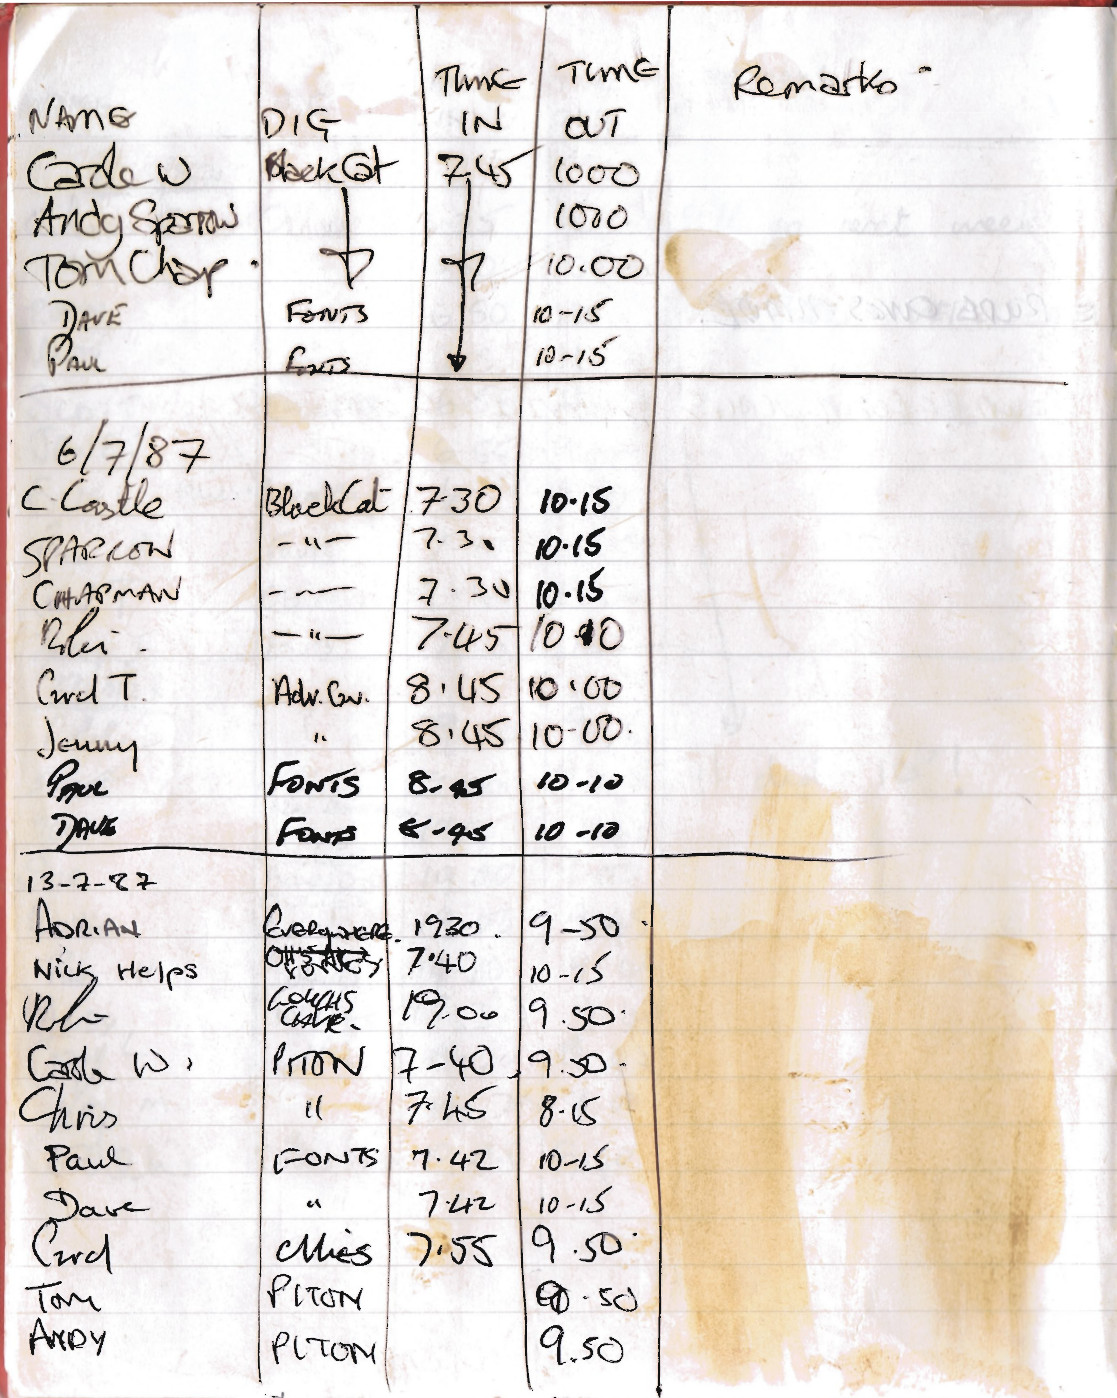 NAME DIG TIME IN TIME OUT Remarks
Carole W Black Cat 7.45 1000
Andy Sparrow 1000
Tom Chap. 10.00
DAVE FONTS 10-15
PAUL FONTS 10-15
6/7/87
C. Castle Black Cat 7.30 10.15
SPARROW -"- 7.30 10.15
CHAPMAN - - 7.30 10.15
-"- 7.45 10.10
T. Adv. 8.45 10.00
Jenny " 8.45 10-00.
PAUL FONTS 8-45 10-10
DAVE FONTS 8-45 10-10
13-7-87
ADRIAN EVERYWHERE. 1930. 9-50
Nick Helps 7.40 10-15
19.00 9.50.
Carole W. PITON 7-40 9.50.
Chris " 7.45 8.15
Paul FONTS 7.42 10-15
Dave " 7.42 10-15
7.55 9.50
Tom PITON 9.50
ANDY PITON 9.50